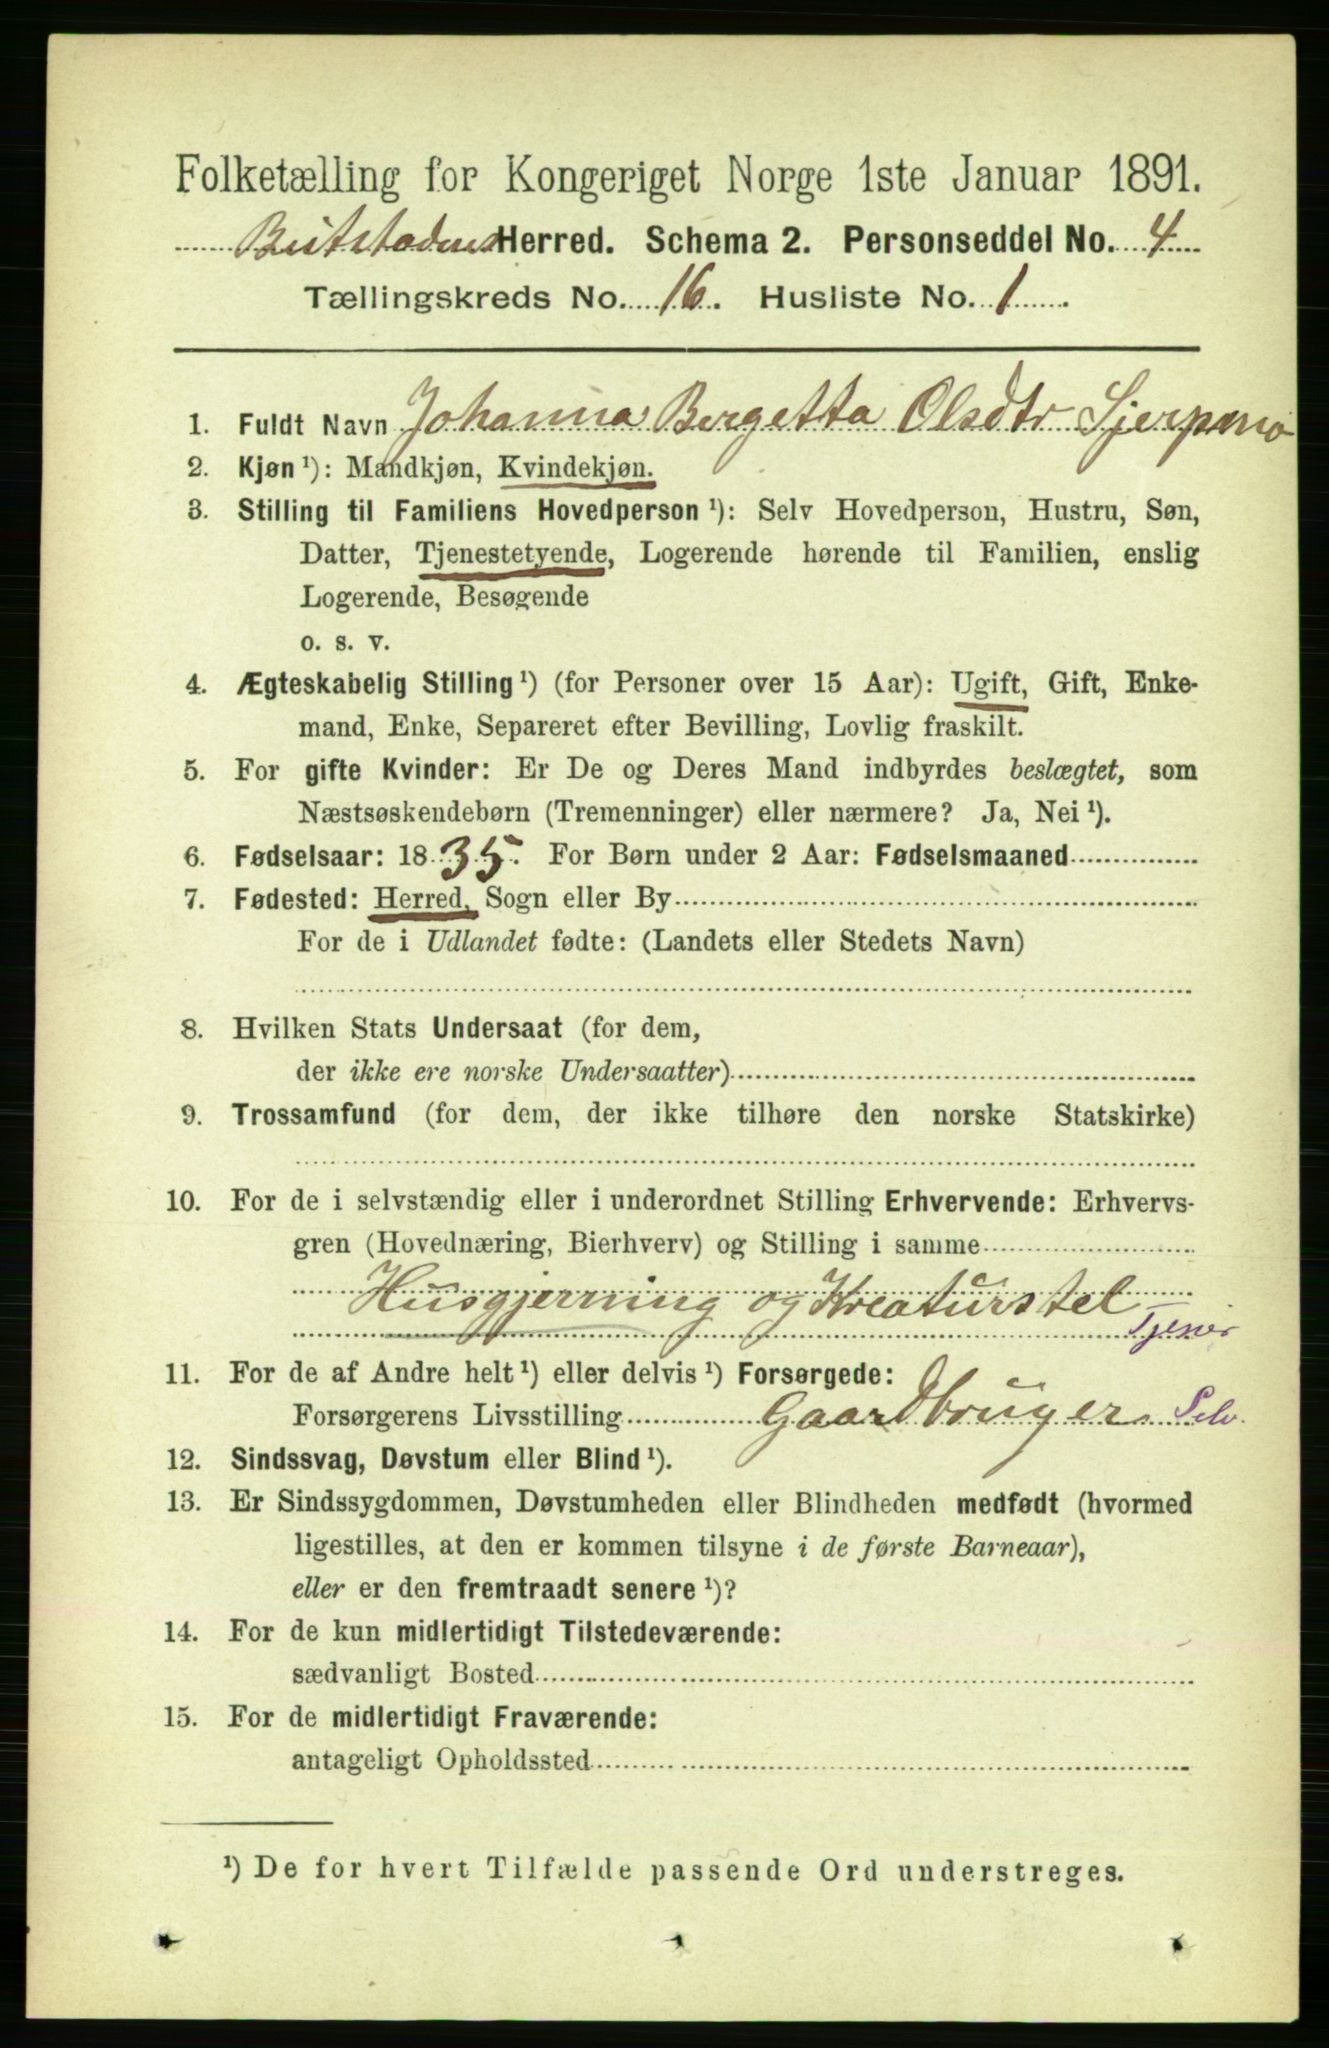 Folketælling for Kongeriget Norge 1ste Januar 1891.
Beitstadens Herred. Schema 2. Personseddel No. 4
Tællingskreds No. 16. Husliste No. 1.
1. Fuldt Navn Johanna Bergetta Olsdtr
2. Kjøn ¹): Mandkjøn, Kvindekjøn.
3. Stilling til Familiens Hovedperson ¹): Selv Hovedperson, Hustru, Søn,
Datter, Tjenestetyende, Logerende hørende til Familien, enslig
Logerende, Besøgende
o. s. v.
4. Ægteskabelig Stilling ¹) (for Personer over 15 Aar): Ugift, Gift, Enke-
mand, Enke, Separeret efter Bevilling, Lovlig fraskilt.
5. For gifte Kvinder: Er De og Deres Mand indbyrdes beslægtet, som
Næstsøskendebørn (Tremenninger) eller nærmere? Ja, Nei ¹).
6. Fødselsaar: 1835. For Børn under 2 Aar: Fødselsmaaned
7. Fødested: Herred, Sogn eller By
For de i Udlandet fødte: (Landets eller Stedets Navn)
8. Hvilken Stats Undersaat (for dem,
der ikke ere norske Undersaatter)
9. Trossamfund (for dem, der ikke tilhøre den norske Statskirke)
10. For de i selvstændig eller i underordnet Stilling Erhvervende: Erhvervs-
gren (Hovednæring, Bierhverv) og Stilling i samme
Husgjerning og Kreaturstel
Tjener
11. For de af Andre helt ¹) eller delvis ¹) Forsørgede:
Forsørgerens Livsstilling Gaardbruger Selv.
12. Sindssvag, Døvstum eller Blind ¹).
13. Er Sindssygdommen, Døvstumheden eller Blindheden medfødt (hvormed
ligestilles, at den er kommen tilsyne i de første Barneaar),
eller er den fremtraadt senere ¹)?
14. For de kun midlertidigt Tilstedeværende:
sædvanligt Bosted
15. For de midlertidigt Fraværende:
antageligt Opholdssted
¹) De for hvert Tilfælde passende Ord understreges.